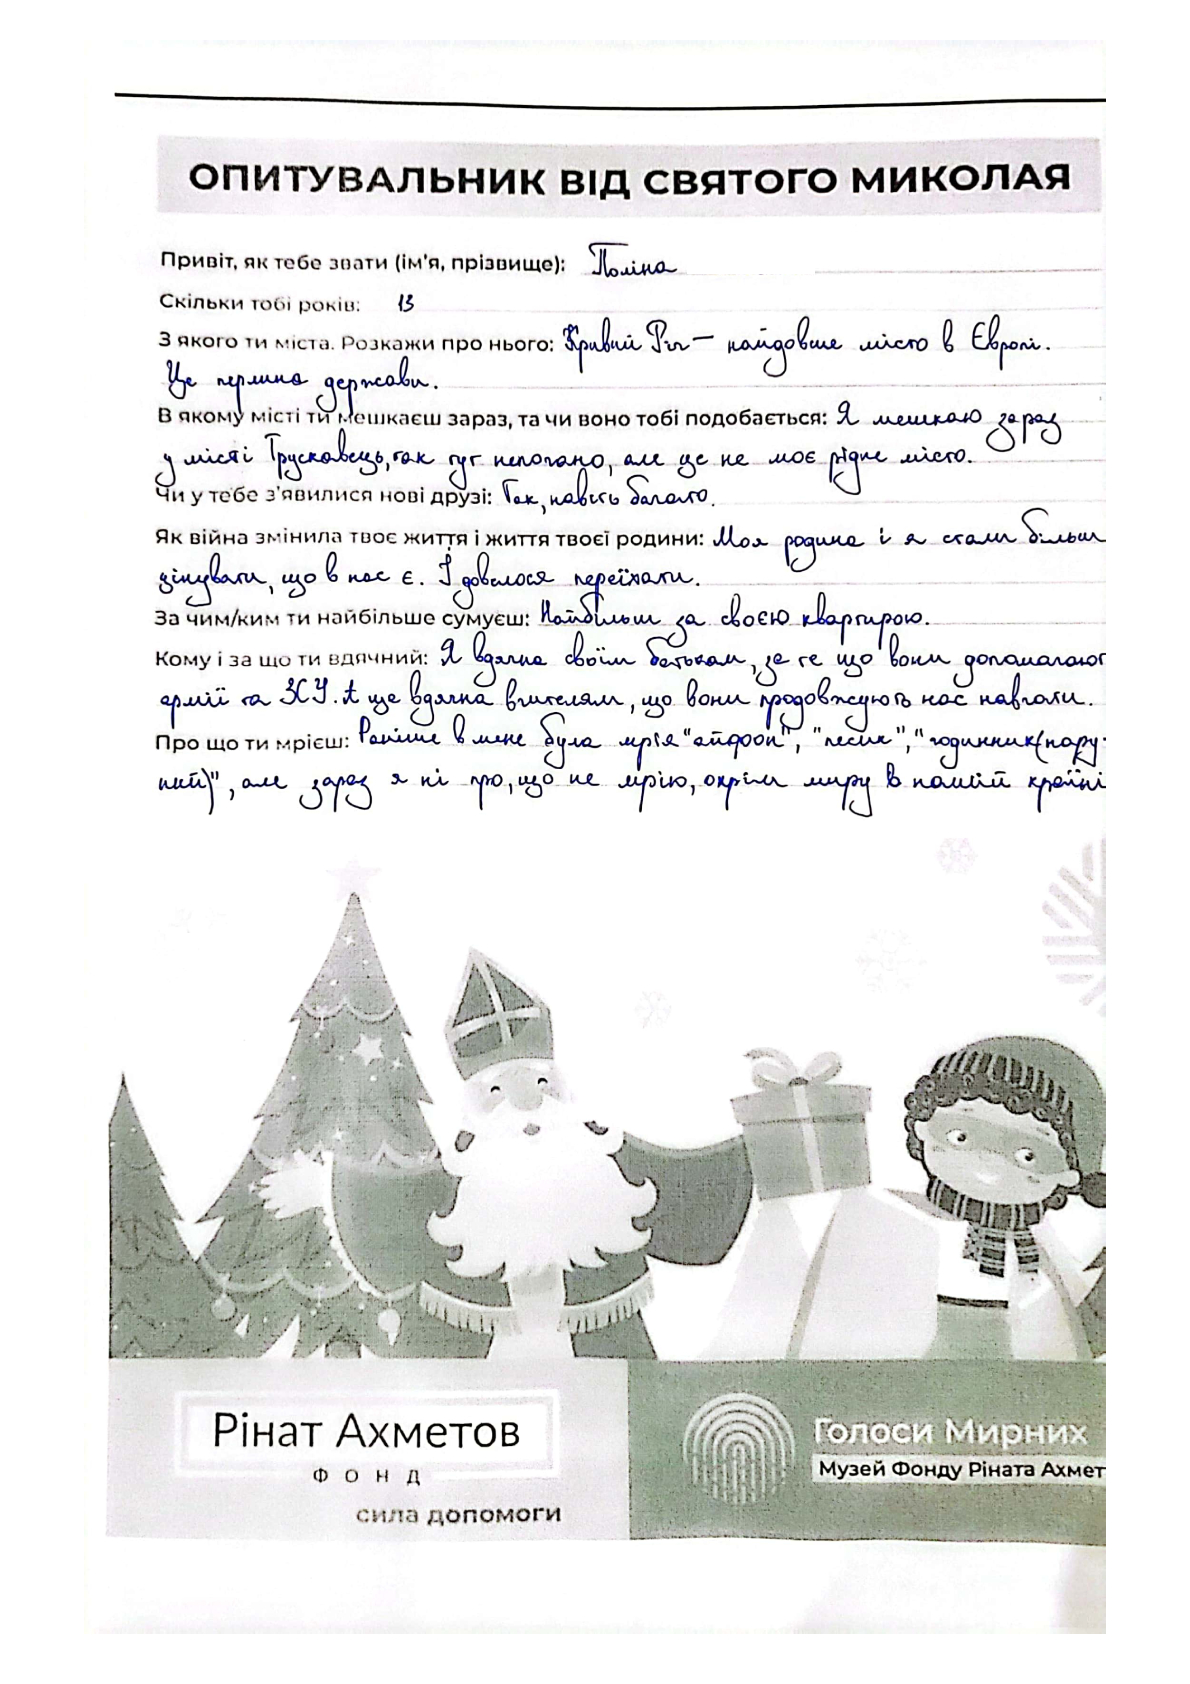 ОПИТУВАЛЬНИК ВІД СВЯТОГО МИКОЛАЯ
Привіт, як тебе звати (ім'я, прізвище): Поліна
Скільки тобі років: 13
З якого ти міста. Розкажи про нього: Кривий Ріг – найдовше місто в Європі.
Це перлина держави.
В якому місті ти мешкаєш зараз, та чи воно тобі подобається: Я мешкаю зараз
у місті Трускавець, так тут непогано, але це не моє рідне місто.
Чи у тебе з'явилися нові друзі: Так, навіть багато.
Як війна змінила твоє життя і життя твоєї родини: Моя родина і я стали більш
цінувати, що в нас є. І довелося переїхати.
За чим/ким ти найбільше сумуєш: Найбільш за своєю квартирою.
Кому і за що ти вдячний: Я вдячна своїм батькам, за те що вони допомагают
армії та ЗСУ. А ще вдячна вчителям, що вони продовжують нас навчати.
Про що ти мрієш: Раніше в мене була мрія "айфон", "песик", "годинник(нару-
чний)", але зараз я ні про, що не мрію, окрім миру в нашій країні
Рінат Ахметов
ФОНД
сила допомоги
Голоси Мирних
Музей Фонду Ріната Ахмет